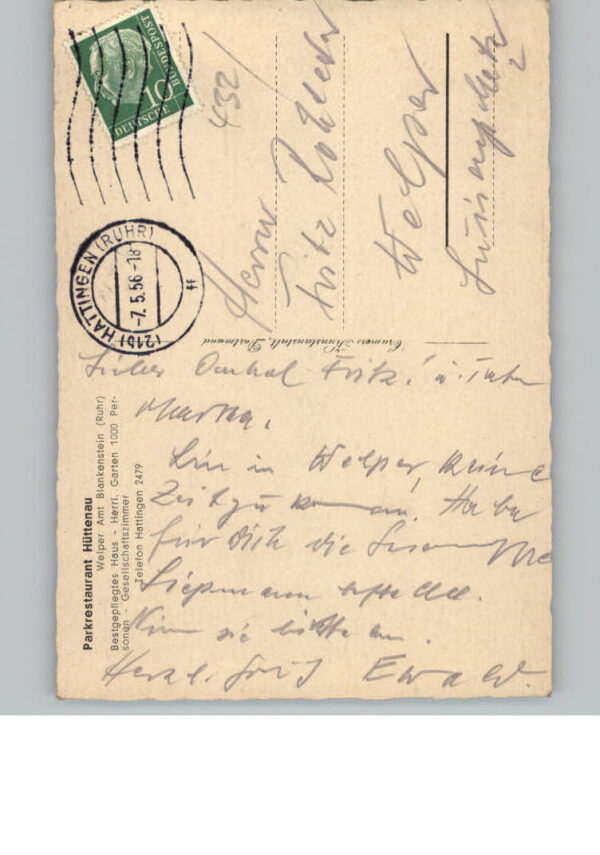 DEUTSCHE
BUNDESPOST
10
(21b) HATTINGEN (RUHR)
-7.5.56-18
ff
432
Herrn
Fritz
Welper
2
Cramers Kunstanstalt, Dortmund
Parkrestaurant Hüttenau
Welper Amt Blankenstein (Ruhr)
Bestgepflegtes Haus - Herrl. Garten 1000 Per-
sonen - Gesellschaftszimmer
Telefon Hattingen 2479
Lieber Onkel Fritz! u. Tante
Martha,
bin in Welper, keine
Zeit zu kommen. Habe
für Dich die
bestellt.
Nimm sie bitte an.
Herzl. Ewald.